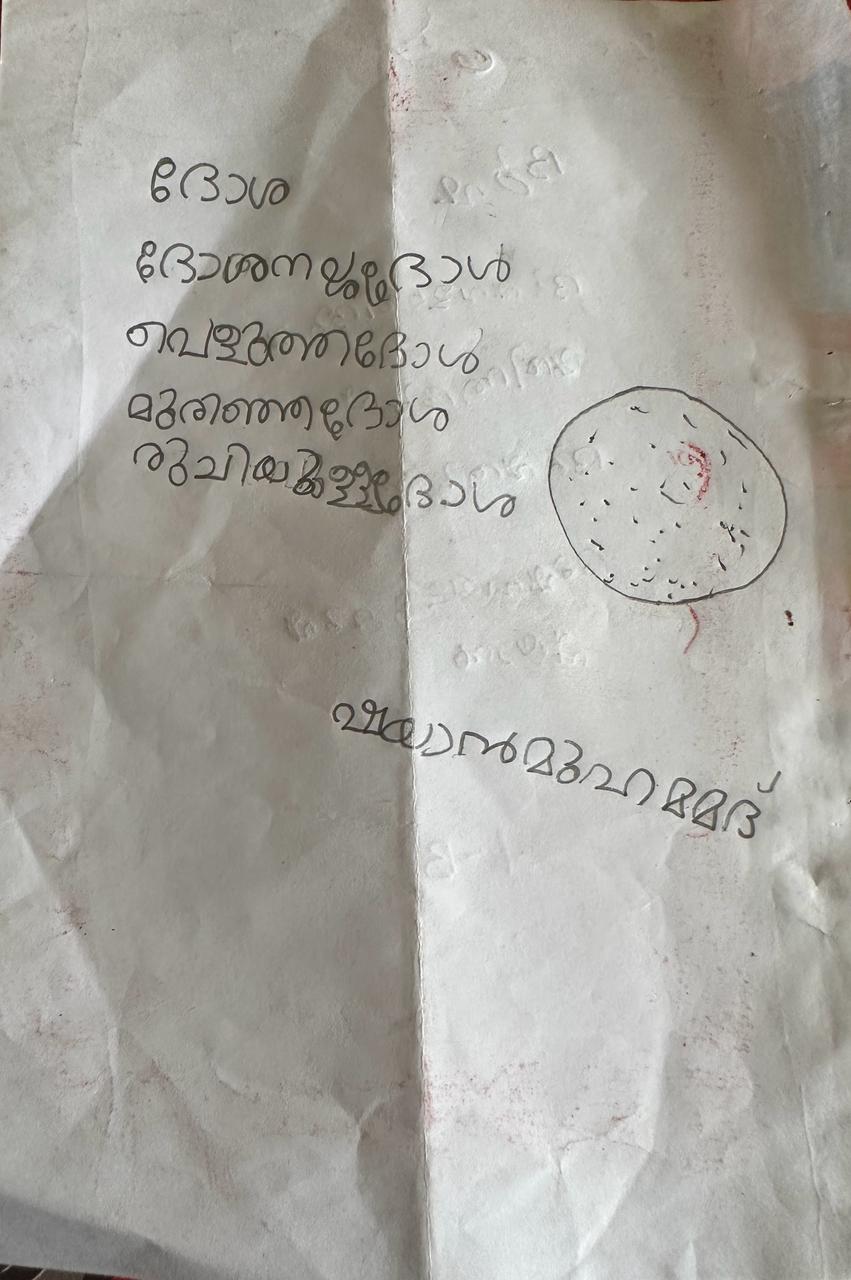 ദോശ
ദോശനല്ലദോശ
വെളുത്തദോശ
മുരിഞ്ഞദോശ
രുചിയുള്ളദോശ
ഷയാൻമുഹമ്മദ്